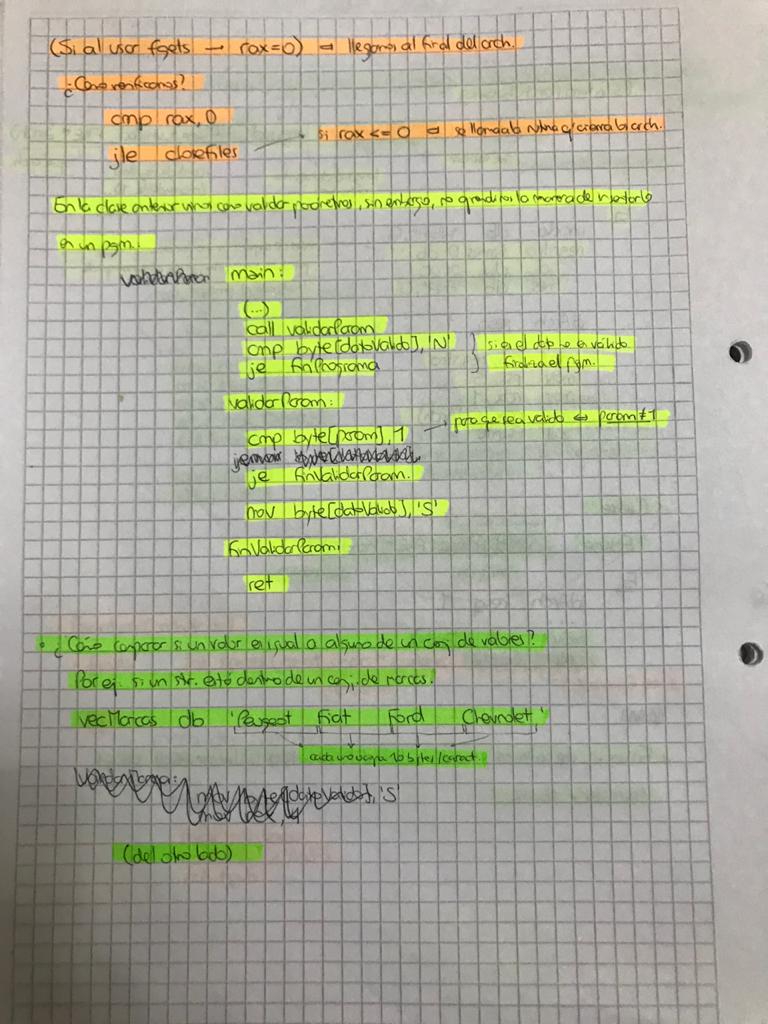 (Si al usar fgets → rax=0) ⇒ llegamos al final del arch.
¿Cómo verificamos?
cmp rax, 0
jle closefiles → si rax <= 0 ⇒ se llama a la rutina q/ cierra el arch.
En la clase anterior vimos como validar parámetros, sin embargo, no la manera de
en un pgm.
validarParam main:
(...)
call validarParam
cmp byte[datoValido], 'N'
je finPrograma
si el dato no es válido
finaliza el pgm.
validarParam:
cmp byte[param], 1 → para que sea valido ⇔ param≠1
je finValidarParam.
mov byte[datoValido], 'S'
finValidarParam:
ret
• ¿Cómo comparar si un valor es igual a alguno de un conj de valores?
Por ej. si un str. está dentro de un conj. de marcas.
vecMarcas db 'Peugeot Fiat Ford Chevrolet'
cada uno ocupa 10 bytes/caract.
mov byte[datoValido], 'S'
(del otro lado)